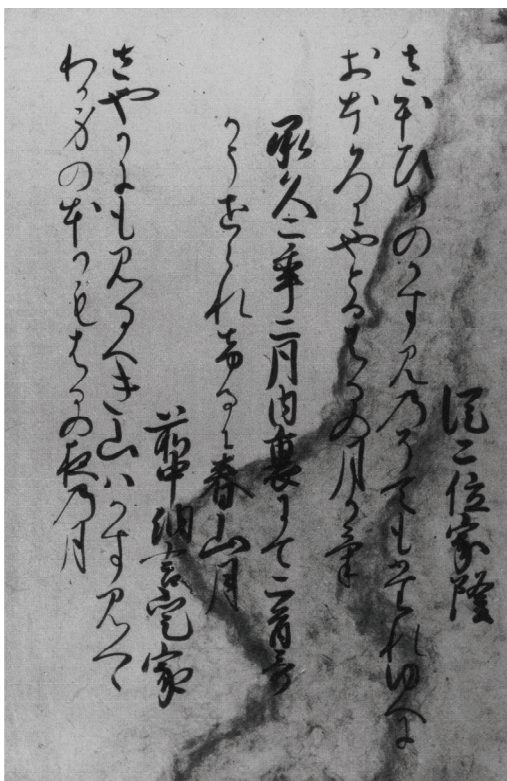 従二位家隆
さほひめのかすみのそてもたれゆへに
おほろにやとるはるの月かけ
承久二年二月内裏にて二首哥
かうせられけるに春山月
前中納言定家
さやかにも見るへき山ハかすみつゝ
わか身のほかもはるの夜の月